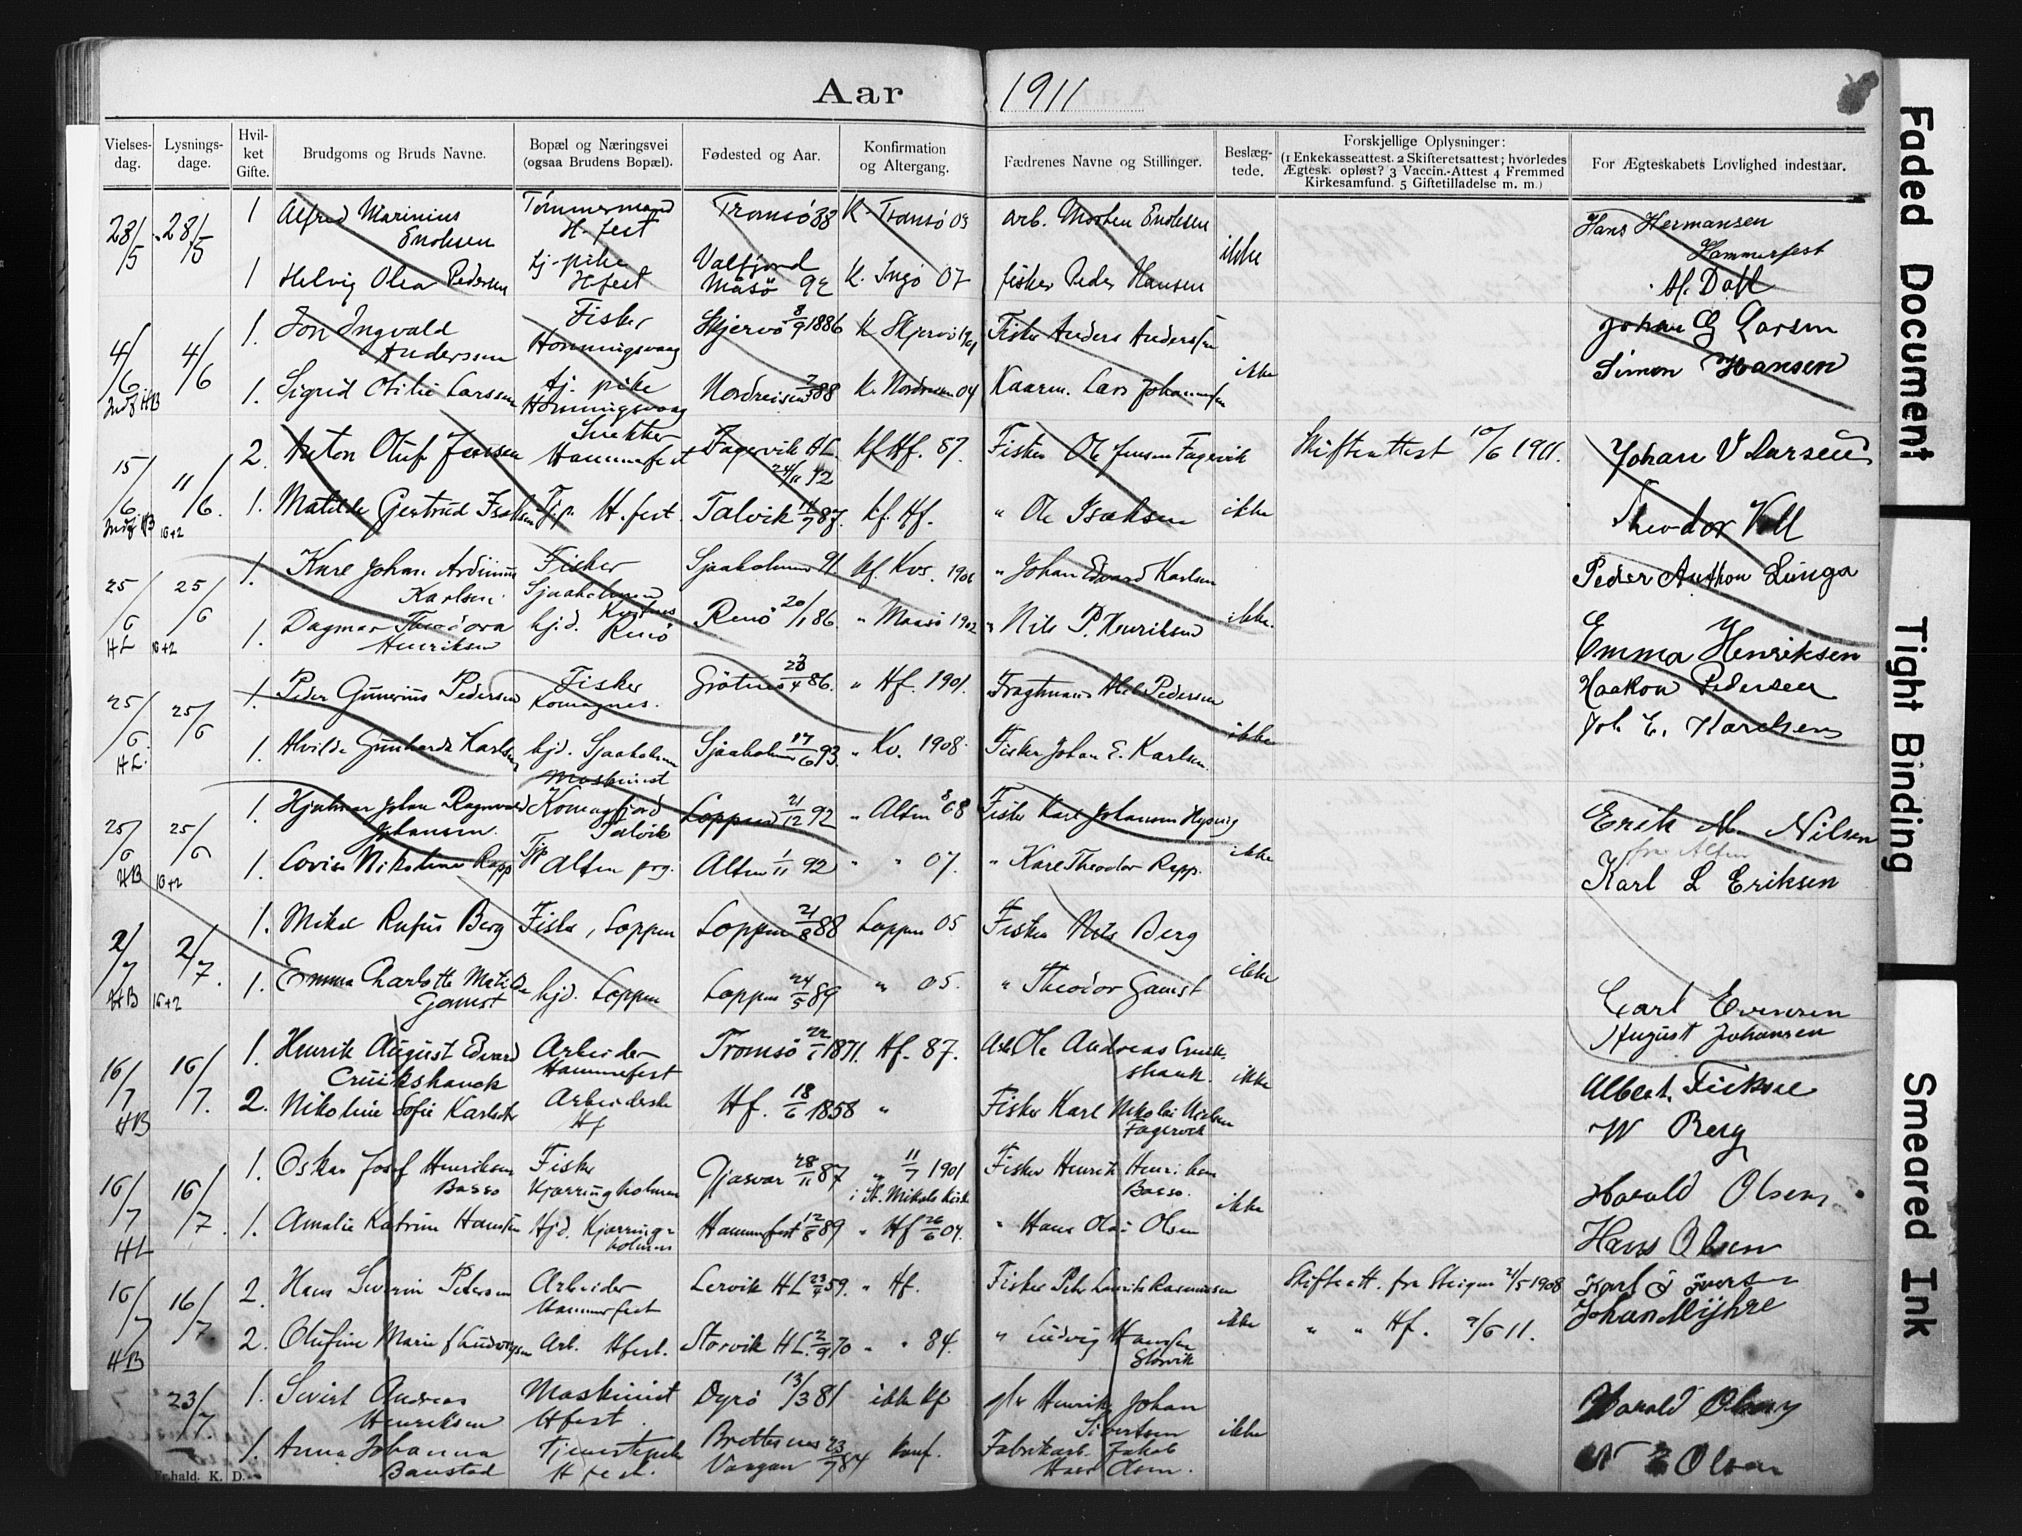 Aar 1911
Vielses-dag. Lysnings-dage. Hvil-ket Gifte. Brudgoms og Bruds Navne. Bopæl og Næringsvei (ogsaa Brudens Bopæl). Fødested og Aar. Konfirmation og Altergang. Fædrenes Navne og Stillinger. Beslæg-tede. Forskjellige Oplysninger: (1 Enkekasseattest. 2 Skifteretsattest; hvorledes Ægtesk. opløst? 3 Vaccin.-Attest 4 Fremmed Kirkesamfund. 5 Giftetilladelse m. m.) For Ægteskabets Lovlighed indestaar.
28/5 28/5 1 Alfred Marinius Enoksen Tømmermand H.fest Tromsö 88 K. Tromsö 03 arb. Morten Enoksen ikke Hans Hermansen Hammerfest
1 Helvig Olea Pedersen tj-pike Hfest Valfjord Måsö 92 K. Ingö 07 fisker Peder Hansen M. Dahl
4/6 4/6 1. Jon Ingvald Anderssen Fisker Honningsvaag Skjervö 8/9 1886 K Skjervö Fisker Anders Anderssen ikke Johan G Larsen
1. Sigrid Otilie Larssen tj. pike Honningsvaag Nordreisen 88 K. Nordreisen 04 Kaarm. Lars Johannessen Simon Hansen
15/6 11/6 2. Anton Oluf Jenssen Snekker Hammerfest Fagervik HL 24/11 72 Kf Hf. 87. Fisker Ole Jensen Fagervik Skifteattest 10/6 1911. Johan V Larsen
10+2 1. Matilde Gertrud Isaksen Tjp. H.fest Talvik 11/7 87. kf. Hf. " Ole Isaksen ikke Theodor Voll
25/6 25/6 1. Kare Johan Ardinius Karlsen Fisker Sjaaholmen Sjaaholmen 91 kf. Kvs. 1906 " Johan Edvard Karlsen Peder Anthon Lunga
HL 10+2 1. Dagmar Theodora Henriksen hjd. Renö Renö 20/1 86. " Maasö 1902 " Nils P. Henriksen ikke. Emma Henriksen
25/6 25/6 1. Peder Gunerius Pedersen Fisker Komagnes. Grötnes 23/4 86. " Hf. 1901. Fragtmand Pedersen Haakon Pedersen
HL. 1. Alvilde Gunharde Karlsen hjd. Sjaaholmen Sjaaholmen 17/6 93. " Kv. 1908. Fisker Johan E. Karlsen. ikke Joh. E. Karlsen
25/6 25/6 1. Hjalmar Johan Ragnvald Johansen. Maskinist Komagfjord Talvik Loppen 21/12 92 " Alten 08 Fisker Karl Johansen ikke Erik M. Nilsen fra Alten
HB 10+2 1. Lovise Nikoline Rapp Tjp Alten prg. Alten 1/11 92 " " 07. " Karl Theodor Rapp. Karl L Eriksen
2/7 2/7. 1. Mikal Rufus Berg Fisker, Loppen Loppen 21/8 88 Loppen 05 Fisker Nils Berg ikke
HB 10+2 1. Emma Charlotte Matilde Gamst hjd. Loppen Loppen 24/5 89 " 05. " Theodor Gamst Carl Evensen
August Johansen
16/7 16/7. 1. Henrik August Edvard Cruikshanck Arbeider Hammerfest Tromsö 22/1 1871. Hf. 87. Arb. Ole Andreas Cruikshank. ikke Albert Fickse
HB 2. Nikoline Sofie Arbeiderske Hf Hf. 18/6 1858 " Fisker Karl Nikolai Nielsen Fagervik W Berg
16/7 16/7. 1. Oskar Josef Henriksen Basso Fisker Kjærringholmen Gjæsvær 28/11 87 " 11/7 1901 i St. Mikals Kirke Fisker Henrik Henriksen Basso. ikke Harald Olsen
HL 1. Amalie Katrine Hansen Hjd. Kjærringholmen Hammerfest 12/8 89 " Hf 26/6 04. " Hans Olai Olsen Hans Olsen
16/7 16/7 2. Hans Severin Petersen Arbeider Hammerfest Lervik HL 23/4 59. " Hf. Fisker Peter Laurits Rasmussen ikke Skifteatt. fra Steigen 21/5 1908 Karl J Iversen
HB 2. Olufine Marie Ludvigsen Arb. Hfest. Storvik HL. 2/9 70 " " 84. " Ludvig Hansen Storvik " " Hf. 9/6 11. Johan Myhre
23/7 1. Sivert Andreas Henriksen Maskinist Hfest. Dyrö 13/3 81 ikke Kf Henrik Johan Sivertsen ikke Harald Olsen
1. Anna Johanna Baustad Tjenestepike Hfest. Brettesnes Vaagan 23/7 84 konf. Fabrikarb. Jakob Hans Olsen. Olsen
Enhald. K. D.
Faded Document
Tight Binding
Smeared Ink